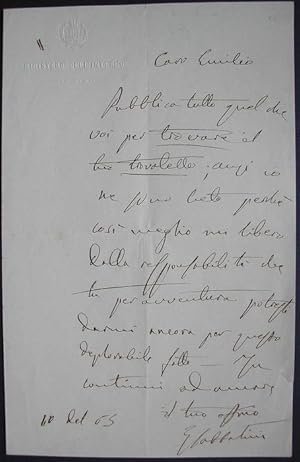 MINISTERO DELL'INTERNO
Caro Emilio
Pubblica tutto quel che
voi per trovare il
tuo trovatello; anzi io
ne sono lieto perchè
così meglio mi libero
dalla responsabilità che
tu per avventura potresti
darmi ancora per questo
deplorabile fatto — 
continui ad amare
il tuo affmo
10 del 65